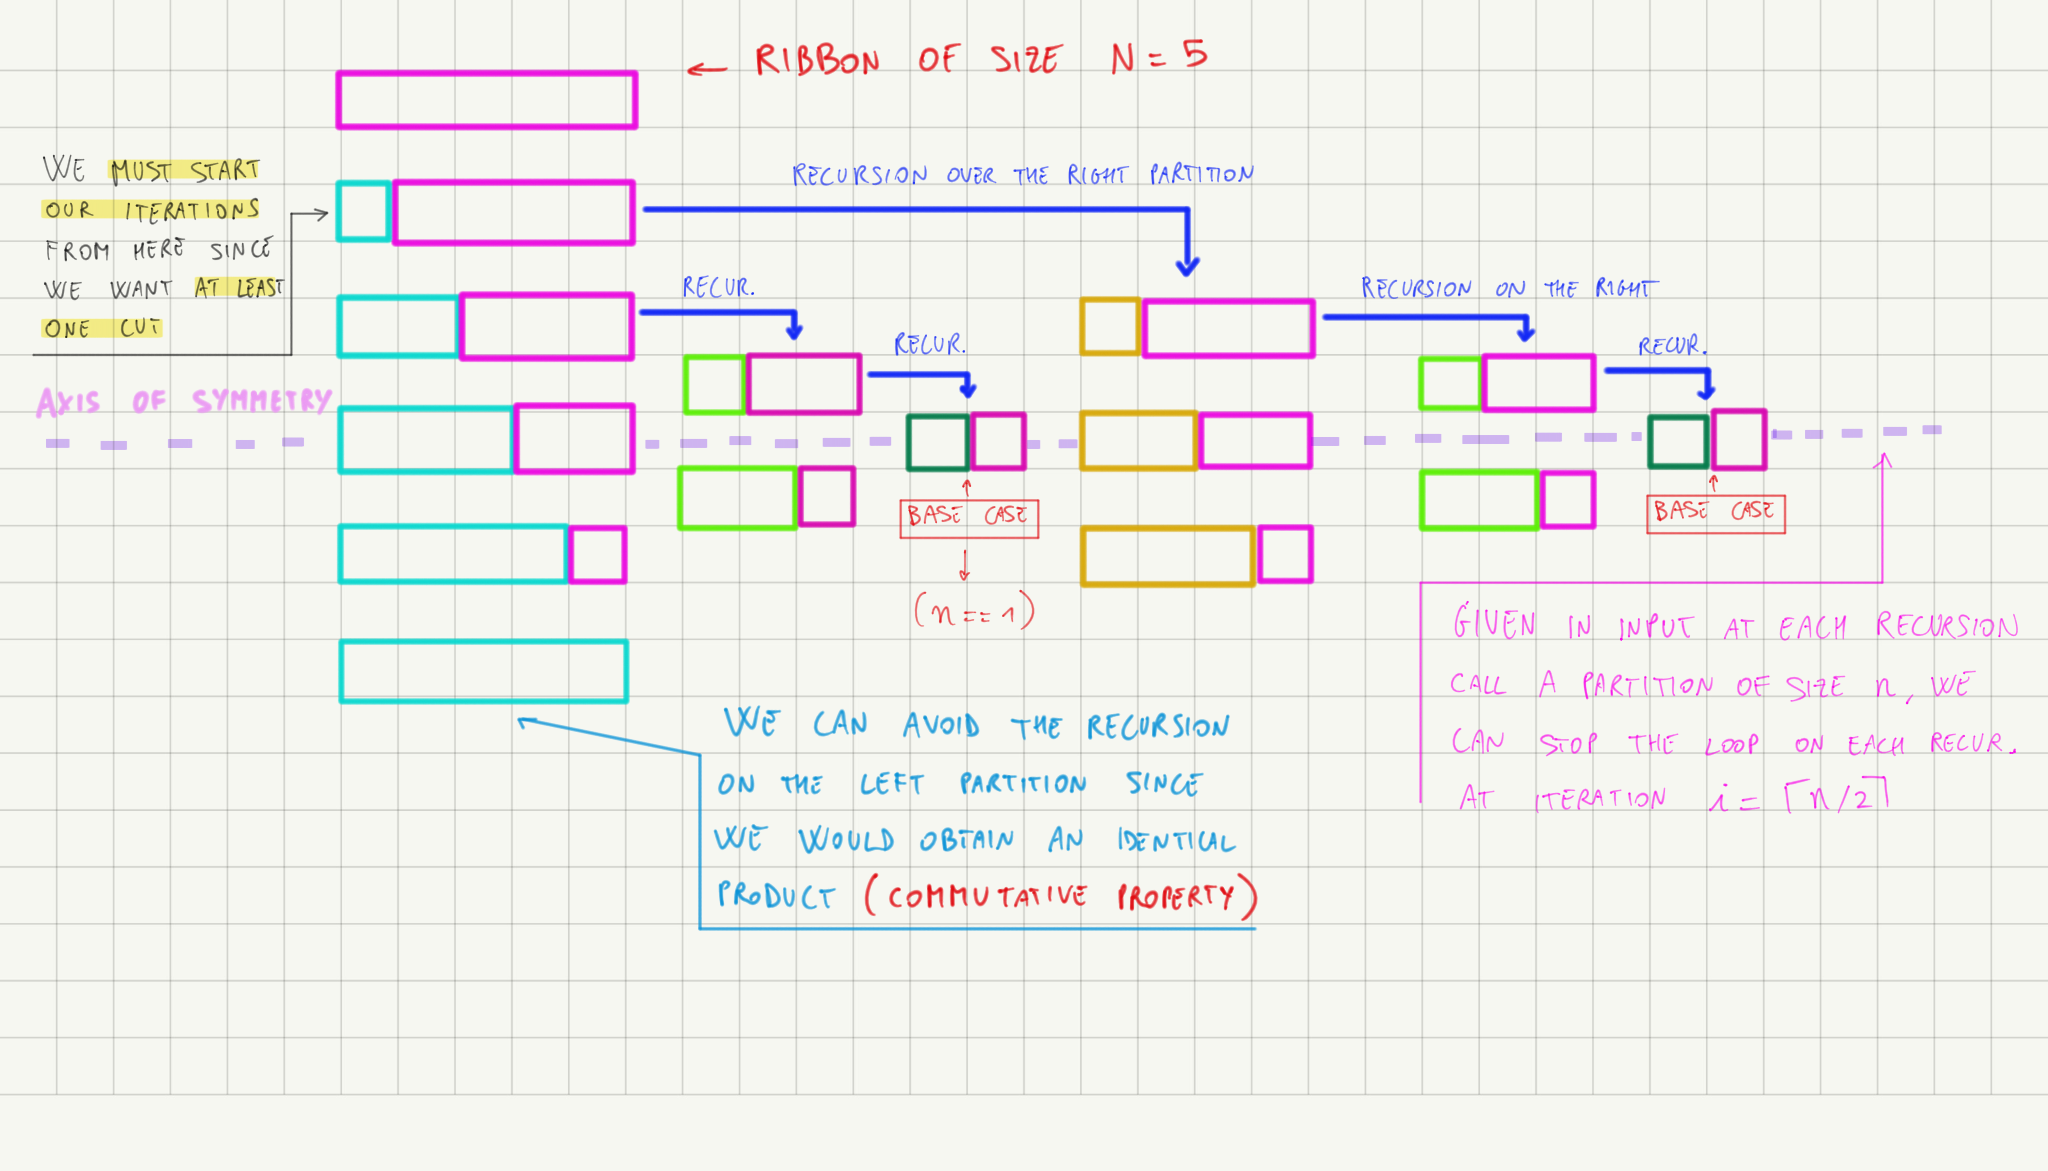 ← RIBBON OF SIZE N = 5
WE MUST START
OUR ITERATIONS
FROM HERE SINCE
WE WANT AT LEAST
ONE CUT
RECURSION OVER THE RIGHT PARTITION
RECUR.
RECURSION ON THE RIGHT
RECUR.
RECUR.
AXIS OF SYMMETRY
BASE CASE
(n == 1)
BASE CASE
GIVEN IN INPUT AT EACH RECURSION
CALL A PARTITION OF SIZE n, WE
CAN STOP THE LOOP ON EACH RECUR.
AT ITERATION i = ⌈n/2⌉
WE CAN AVOID THE RECURSION
ON THE LEFT PARTITION SINCE
WE WOULD OBTAIN AN IDENTICAL
PRODUCT (COMMUTATIVE PROPERTY)